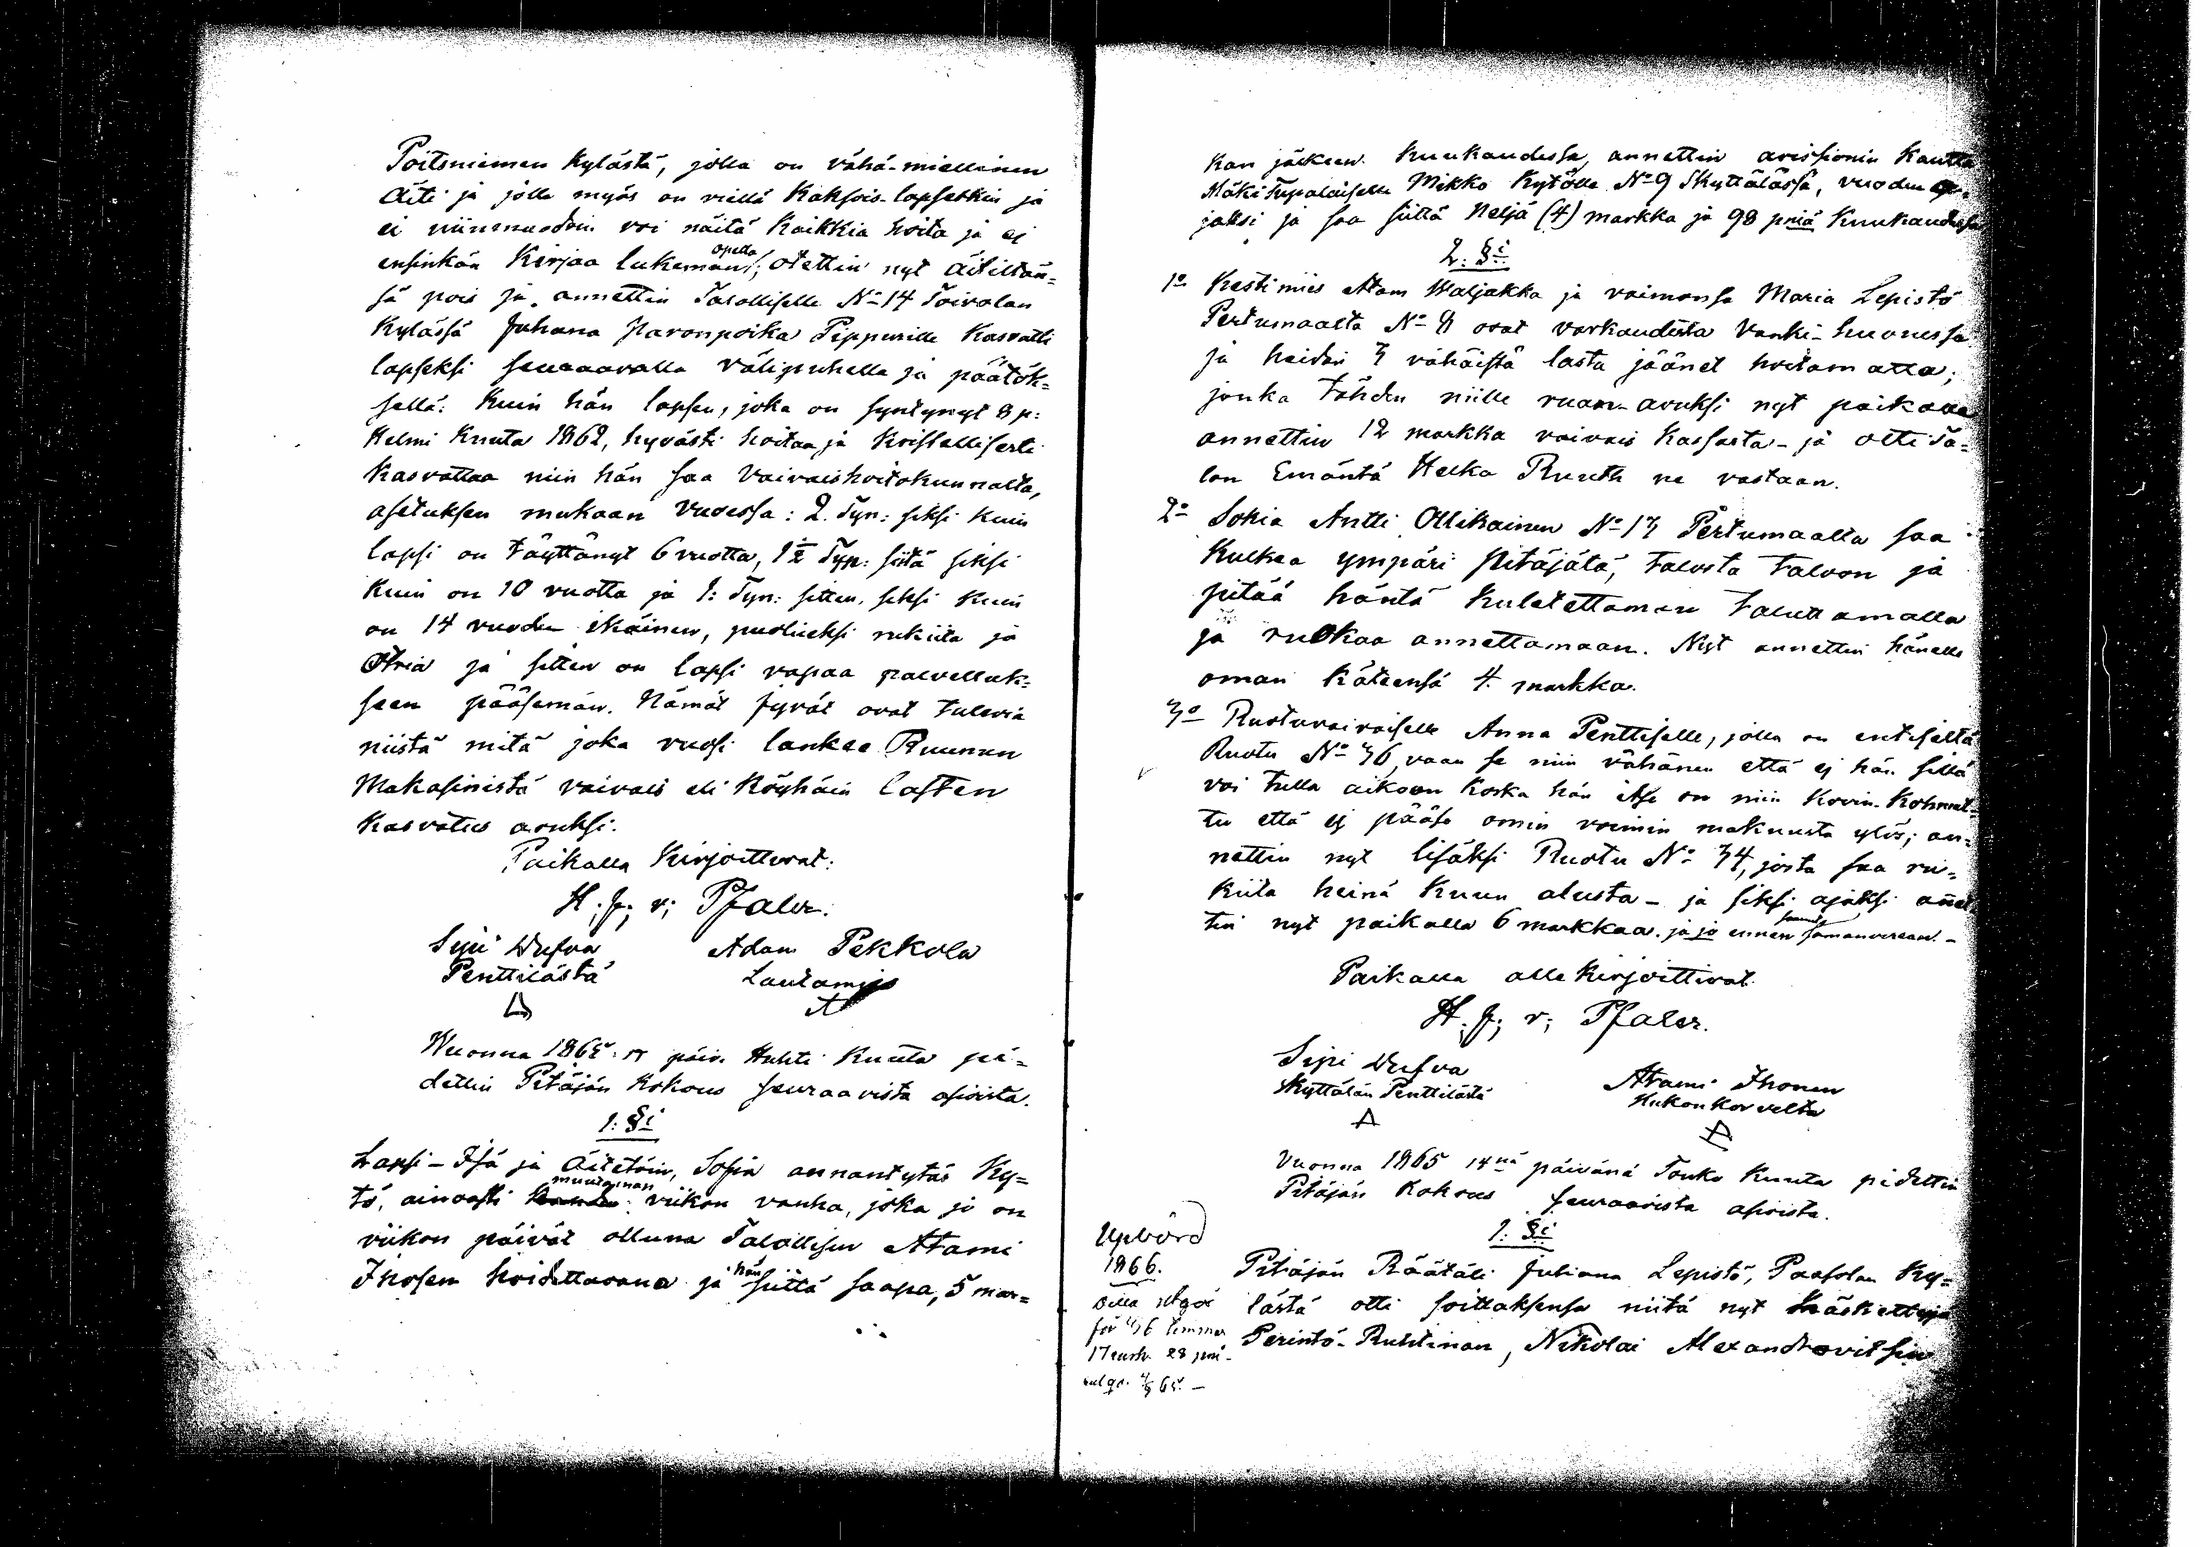 Pöitsniemen Kylästä, jolla on vähä-miellinen
Äiti ja jolla myös on viellä Kaksois-lapsetkin ja
ei niinmuodoin voi näitä Kaikkia hoita ja ej
ensinkän Kirjaa lukeman opetta; otettin nyt äitiltän-
sä pois ja annettin Talolliselle No 14 Toivolan
Kylässä Juhana Aaronpoika Pippurille Kasvatti
lapseksi seuraavalla välipuhella ja päätök-
sellä: Kuin hän lapsen, joka on syntynyt 8 p:
Helmi Kuuta 1862, hyvästi hoitaa ja Kristillisesti
Kasvattaa niin hän saa Vaivaishoitokunnalta,
asetuksen mukaan vuosessa: 2. Tyn: siksi kuin
lapsi on täyttänyt 6 vuotta, 1½ Tyn: siitä siksi
Kuin on 10 vuotta ja 1: Tyn: sitten, siksi Kuin
on 14 vuoden ikäinen, puolieksi rukiita ja
Otria ja sitten on lapsi vapaa palvelluk-
seen pääsemän. Nämät jyvät ovat tulevia
niistä mitä joka vuosi lankee Ruunun
Makasinistä vaivais eli Köyhäin lasten
Kasvatus avuksi.
Paikalla Kirjoittivat:
H. J; v; Pfaler.
Sipi Dufva Adam Pekkola
Penttilästä Lautamijs
Wuonna 1865 päiv. Huhti Kuuta pi-
dettin Pitäjän Kokous seuraavista asioista.
1: §i
Lapsi-Isä ja Äitetöin, Sofia annantytär Ky-
tö, ainoasti muutaman viikon vanha, joka jo on
viikon päivät olluna Talollisen Atami
Ihosen hoidettavana ja hän siittä saapa, 5 mar-
kan jälkeen Kuukaudessa, annettin Kautta
Mäki Tupalaiselle Mikko Kytölle No 9 Skyttälässä, vuoden
jaksi ja saa siittä Neljä (4) markka ja 98 pniä Kuukaudessa
2: §i
1o Kestimies Atam Waljakka ja vaimonsa Maria Lepistö
Pertumaalta No 8 ovat varkaudesta Vanki-huonessa
ja heidän 3 vähäistä lasta jäänet hoitamatta;
jonka tähden niille ruan-avuksi nyt paikalla
annettin 12 markka vaivais Kassasta- ja otti Ta-
lon Emäntä Helka Ruuth ne vastaan.
2o Sokia Antti Ollikainen No 13 Pertumaalta saa
Kulkea ympäri Pitäjätä, talosta taloon ja
pitää häntä kuletettaman taluttamalla
ja ruokaa annettamaan. Nyt annettin hänelle
oman Käteensä 4 markka.
3o Ruotuvaivaiselle Anna Penttiselle, jolla on entiseltä
Ruotu No 36, vaan se niin vähänen että ej hän sillä
voi tulla aikoon Koska hän itse on niin Kovin-Kohmet-
tu että ej pääse omin voimin makuusta ylös; an-
nettin nyt lisäksi Ruotu No 34, josta saa ru-
kiita heinä Kuun alusta - ja siksi ajaksi annet-
tin nyt paikalla 6 markkaa. ja jo ennen samanveraan. -
Paikalla alle Kirjoittivat.
H. J; v; Pfaler.
Sipi Dufva Atami Ihonen
Skyttälän Penttilästä Hukonkorvelta
Vuonna 1865 14nä päivänä Touko Kuuta pidettin
Pitäjän Kokous seuraavista asioista.
1: §i
Uppbörd
1866.
Pitäjän Räätäli Juhana Lepistö, Paasolan Ky-
lästä otti soittaksensa niitä nyt Käskettyjä
Perintö-Ruhtinan, Nikolai Alexandrovitsin